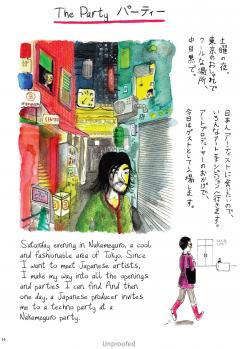 The Party パーティー
土曜の夜。
東京のおしゃれで
クールな場所、
中目黒で。
日本人アーティストに会いたいので、
いろんなアートオープニングへ行きます。
アートプロデューサーのおかげで、
今日はゲストとして入場します。
Saturday evening in Nakameguro, a cool
and fashionable area of Tokyo. Since
I want to meet Japanese artists,
I make my way into all the openings
and parties I can find. And then
one day, a Japanese producer invites
me to a techno party at a
Nakameguro party.
14
Unproofed